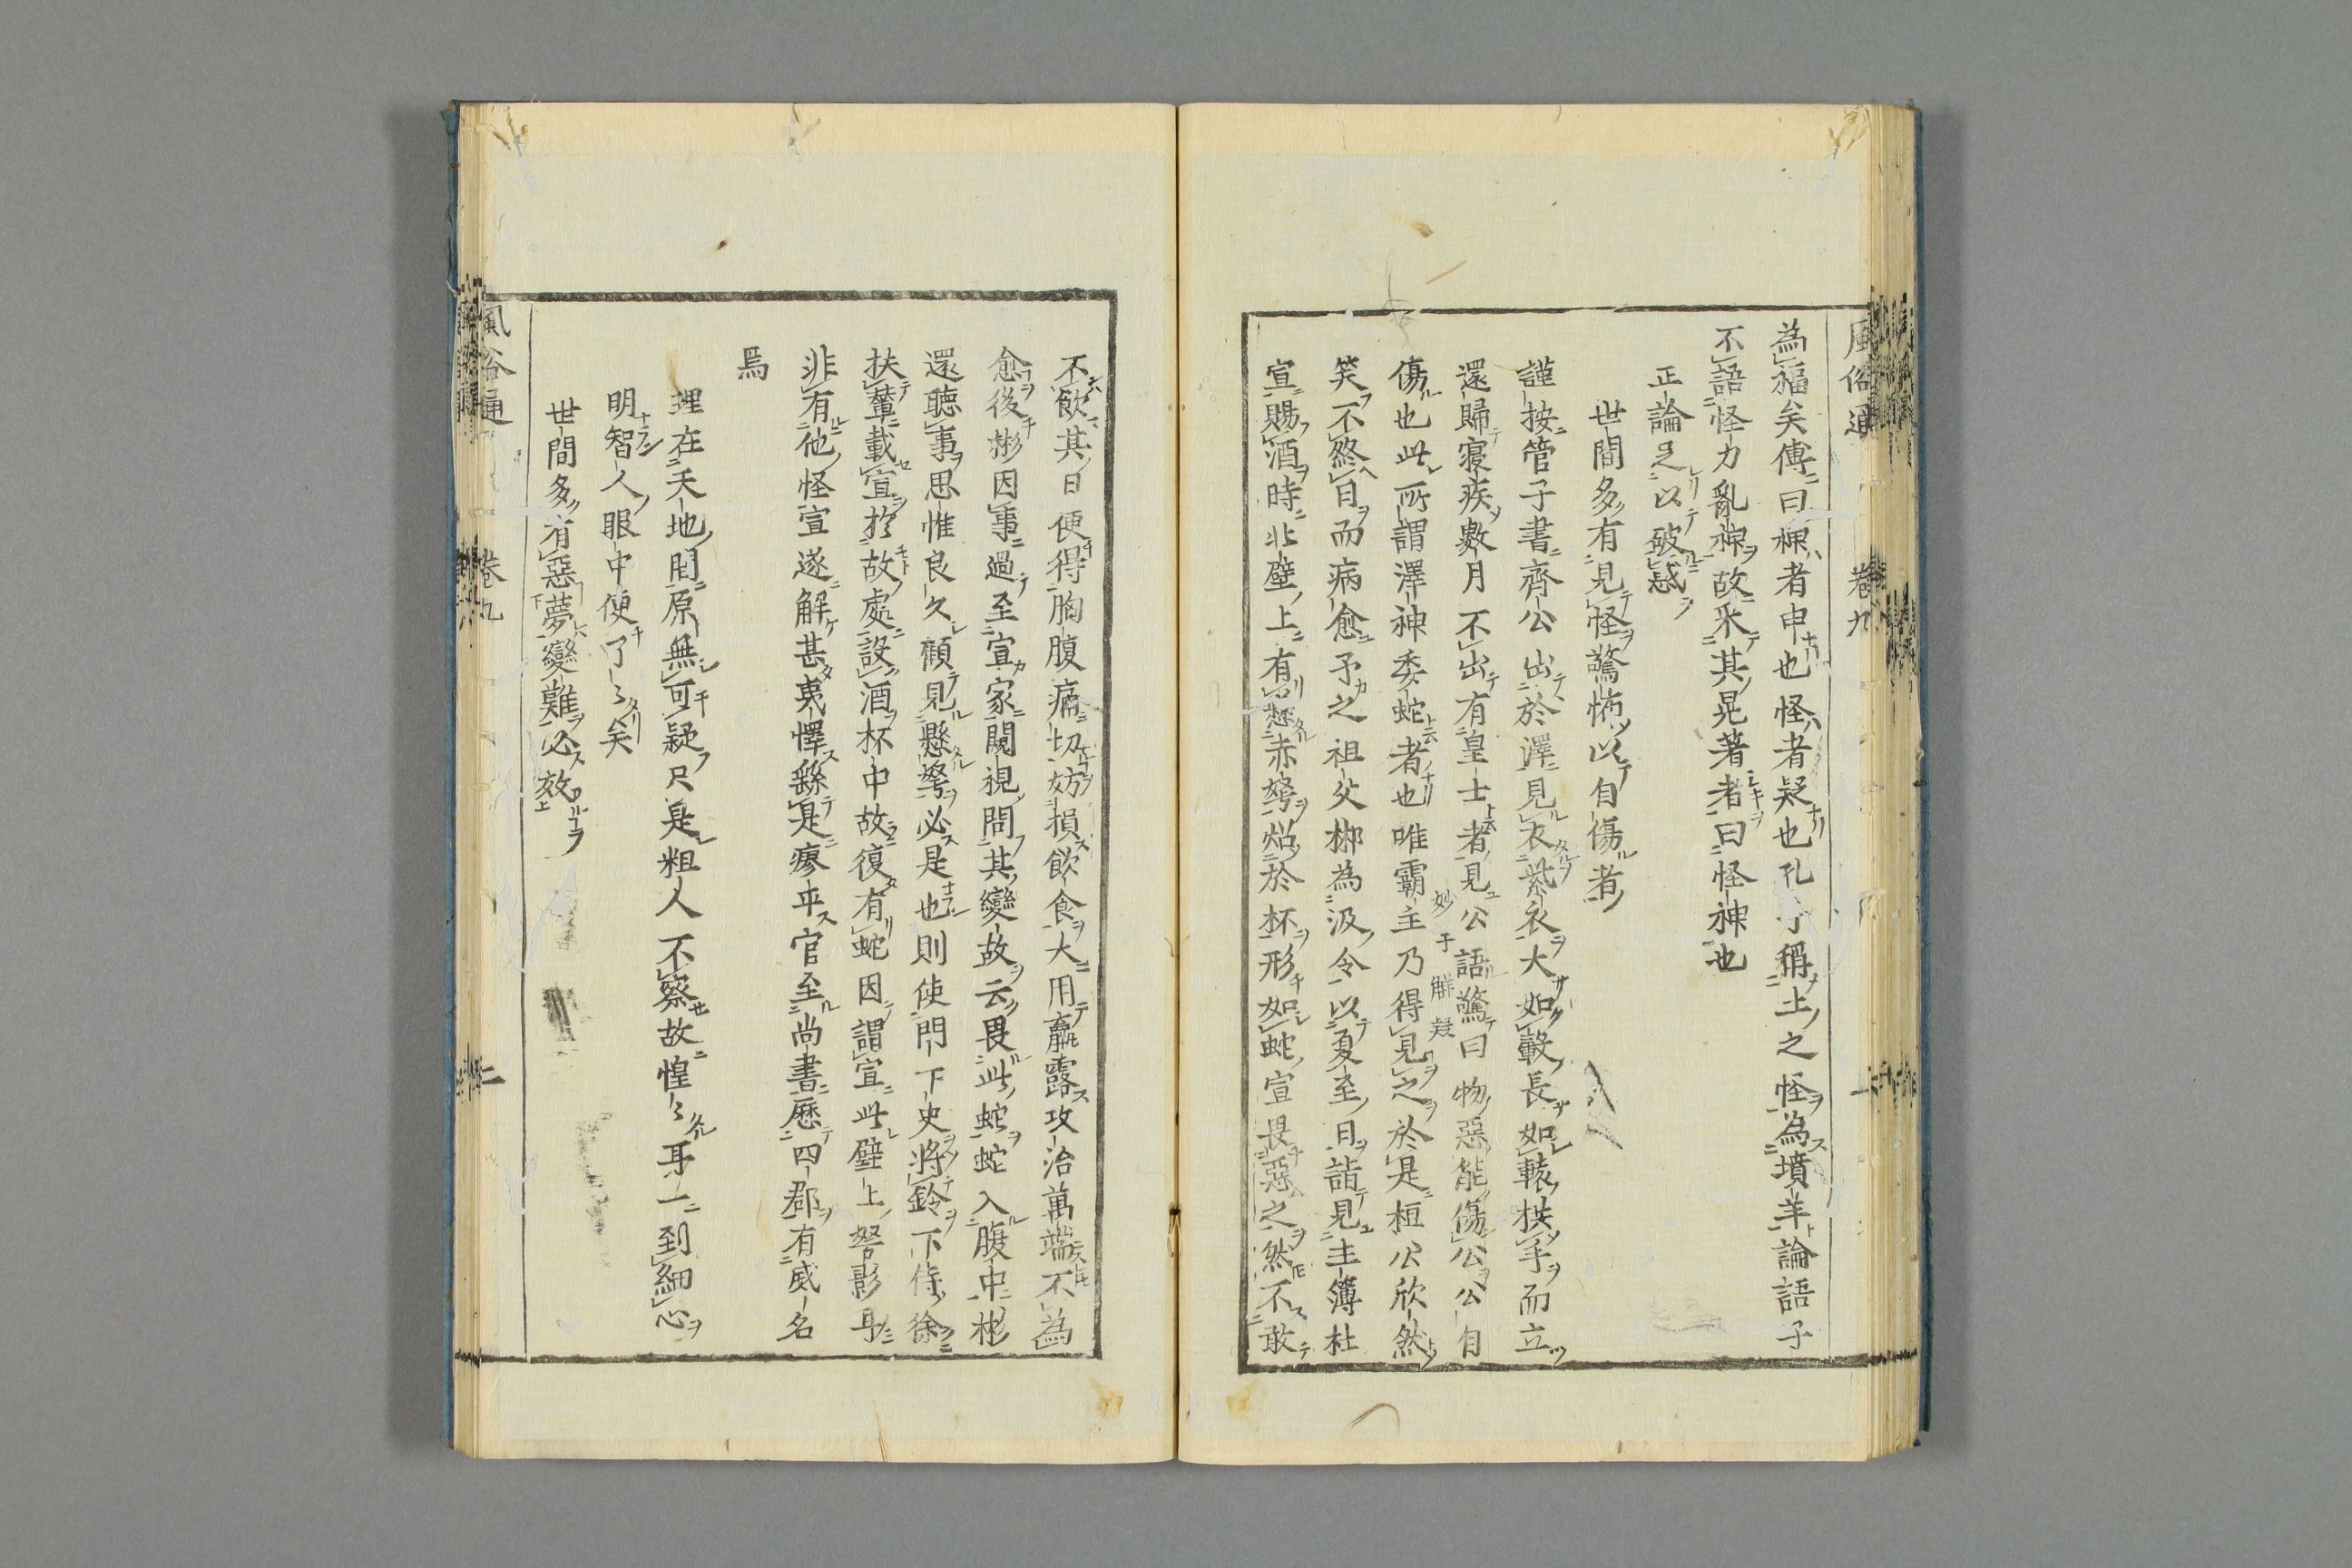 風俗通　卷九　一
為福矣傳曰神者申也怪者疑也孔子稱土之怪為墳羊論語子
不語怪力亂神故采其晃著者曰怪神也
正論足以破惑
世間多有見怪驚怖以自傷者
謹按管子書齊公出於澤見衣紫衣大如轂長如轅拱手而立
還歸寢疾數月不出有皇士者見公語驚曰物惡能傷公公自
妙于觧疑
傷也此所謂澤神委蛇者也唯霸主乃得見之於是桓公欣然
笑不終日而病愈予之祖父郴為汲令以夏至日詣見主簿杜
宣賜酒時北壁上有懸赤弩炤於杯形如蛇宣畏惡之然不敢
不飲其日便得胸腹痛切妨損飲食大用羸露攻治萬端不為
愈後彬因事過至宣家闚視問其變故云畏此蛇蛇入腹中彬
還聽事思惟良久顧見懸弩必是也則使門下史將鈴下侍徐
扶輦載宣於故處設酒杯中故復有蛇因謂宣此壁上弩影耳
非有他怪宣遂解甚夷懌繇是瘳平官至尚書歷四郡有威名
焉
理在天地間原無可疑只是粗人不察故惶〻耳一到細心
明智人眼中便了〻矣
世間多有惡夢變難必效
風俗通　卷九　二